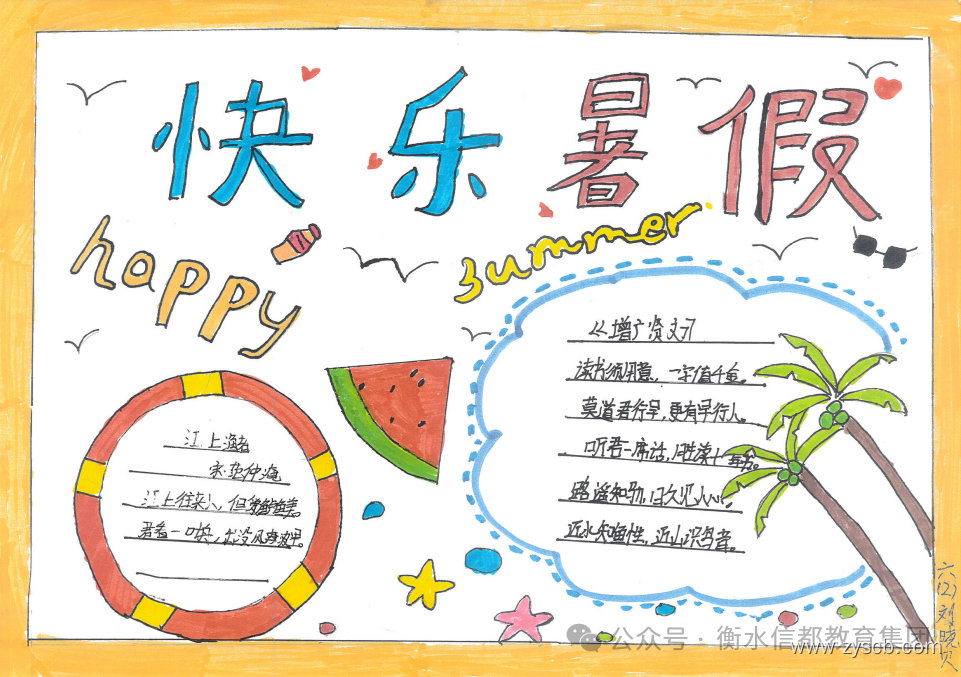 快乐暑假
happy
summer
《增广贤文》
读书须用意，一字值千金。
莫道君行早，更有早行人。
听君一席话，胜读十年书。
路遥知马力，日久见人心。
近水知鱼性，近山识鸟音。
江上渔者
宋·范仲淹
江上往来人，但爱鲈鱼美。
君看一叶舟，出没风波里。
六(2)刘晓贝
公众号·衡水信都教育集团
www.zyscb.com